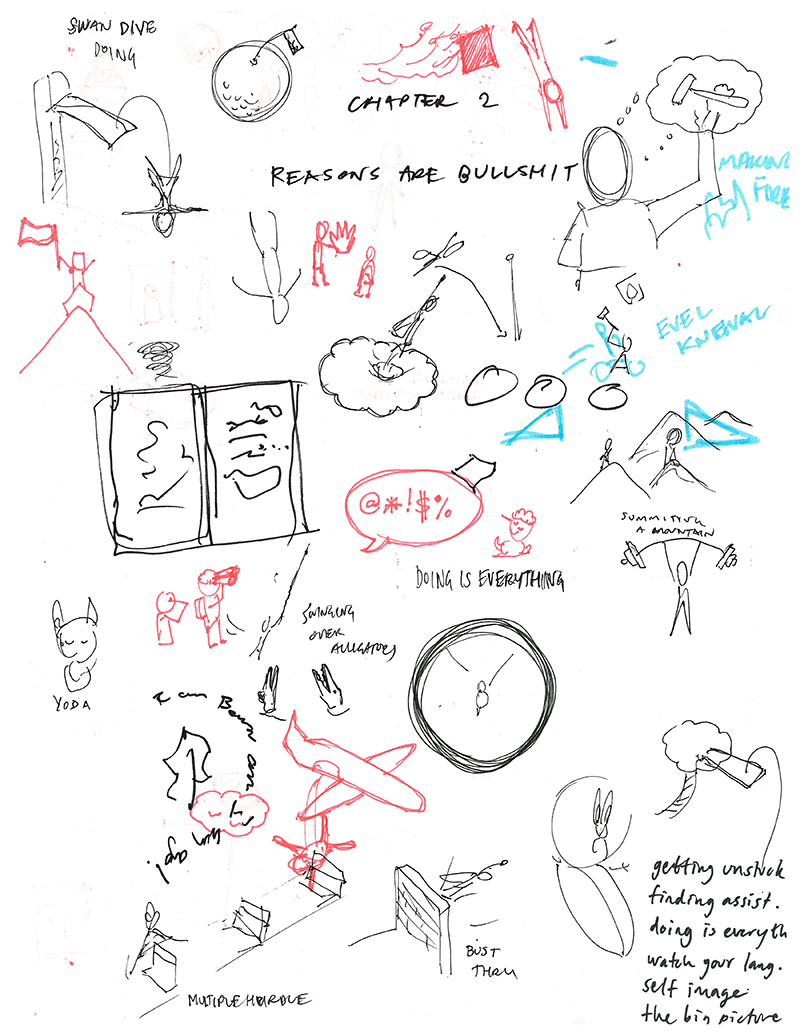 SWAN DIVE
DOING
CHAPTER 2
REASONS ARE BULLSHIT
MAKING
FIRE
EVEL
KNEWAL
@*!$%
SUMMITING
A MOUNTAIN
DOING IS EVERYTHING
SWINGING
OVER
ALLIGATORS
YODA
I am Bown an
getting unstuck
finding assist.
doing is everyth
watch your lang.
self image
the big picture
BUST
THRU
MUTIPLE HURDLE